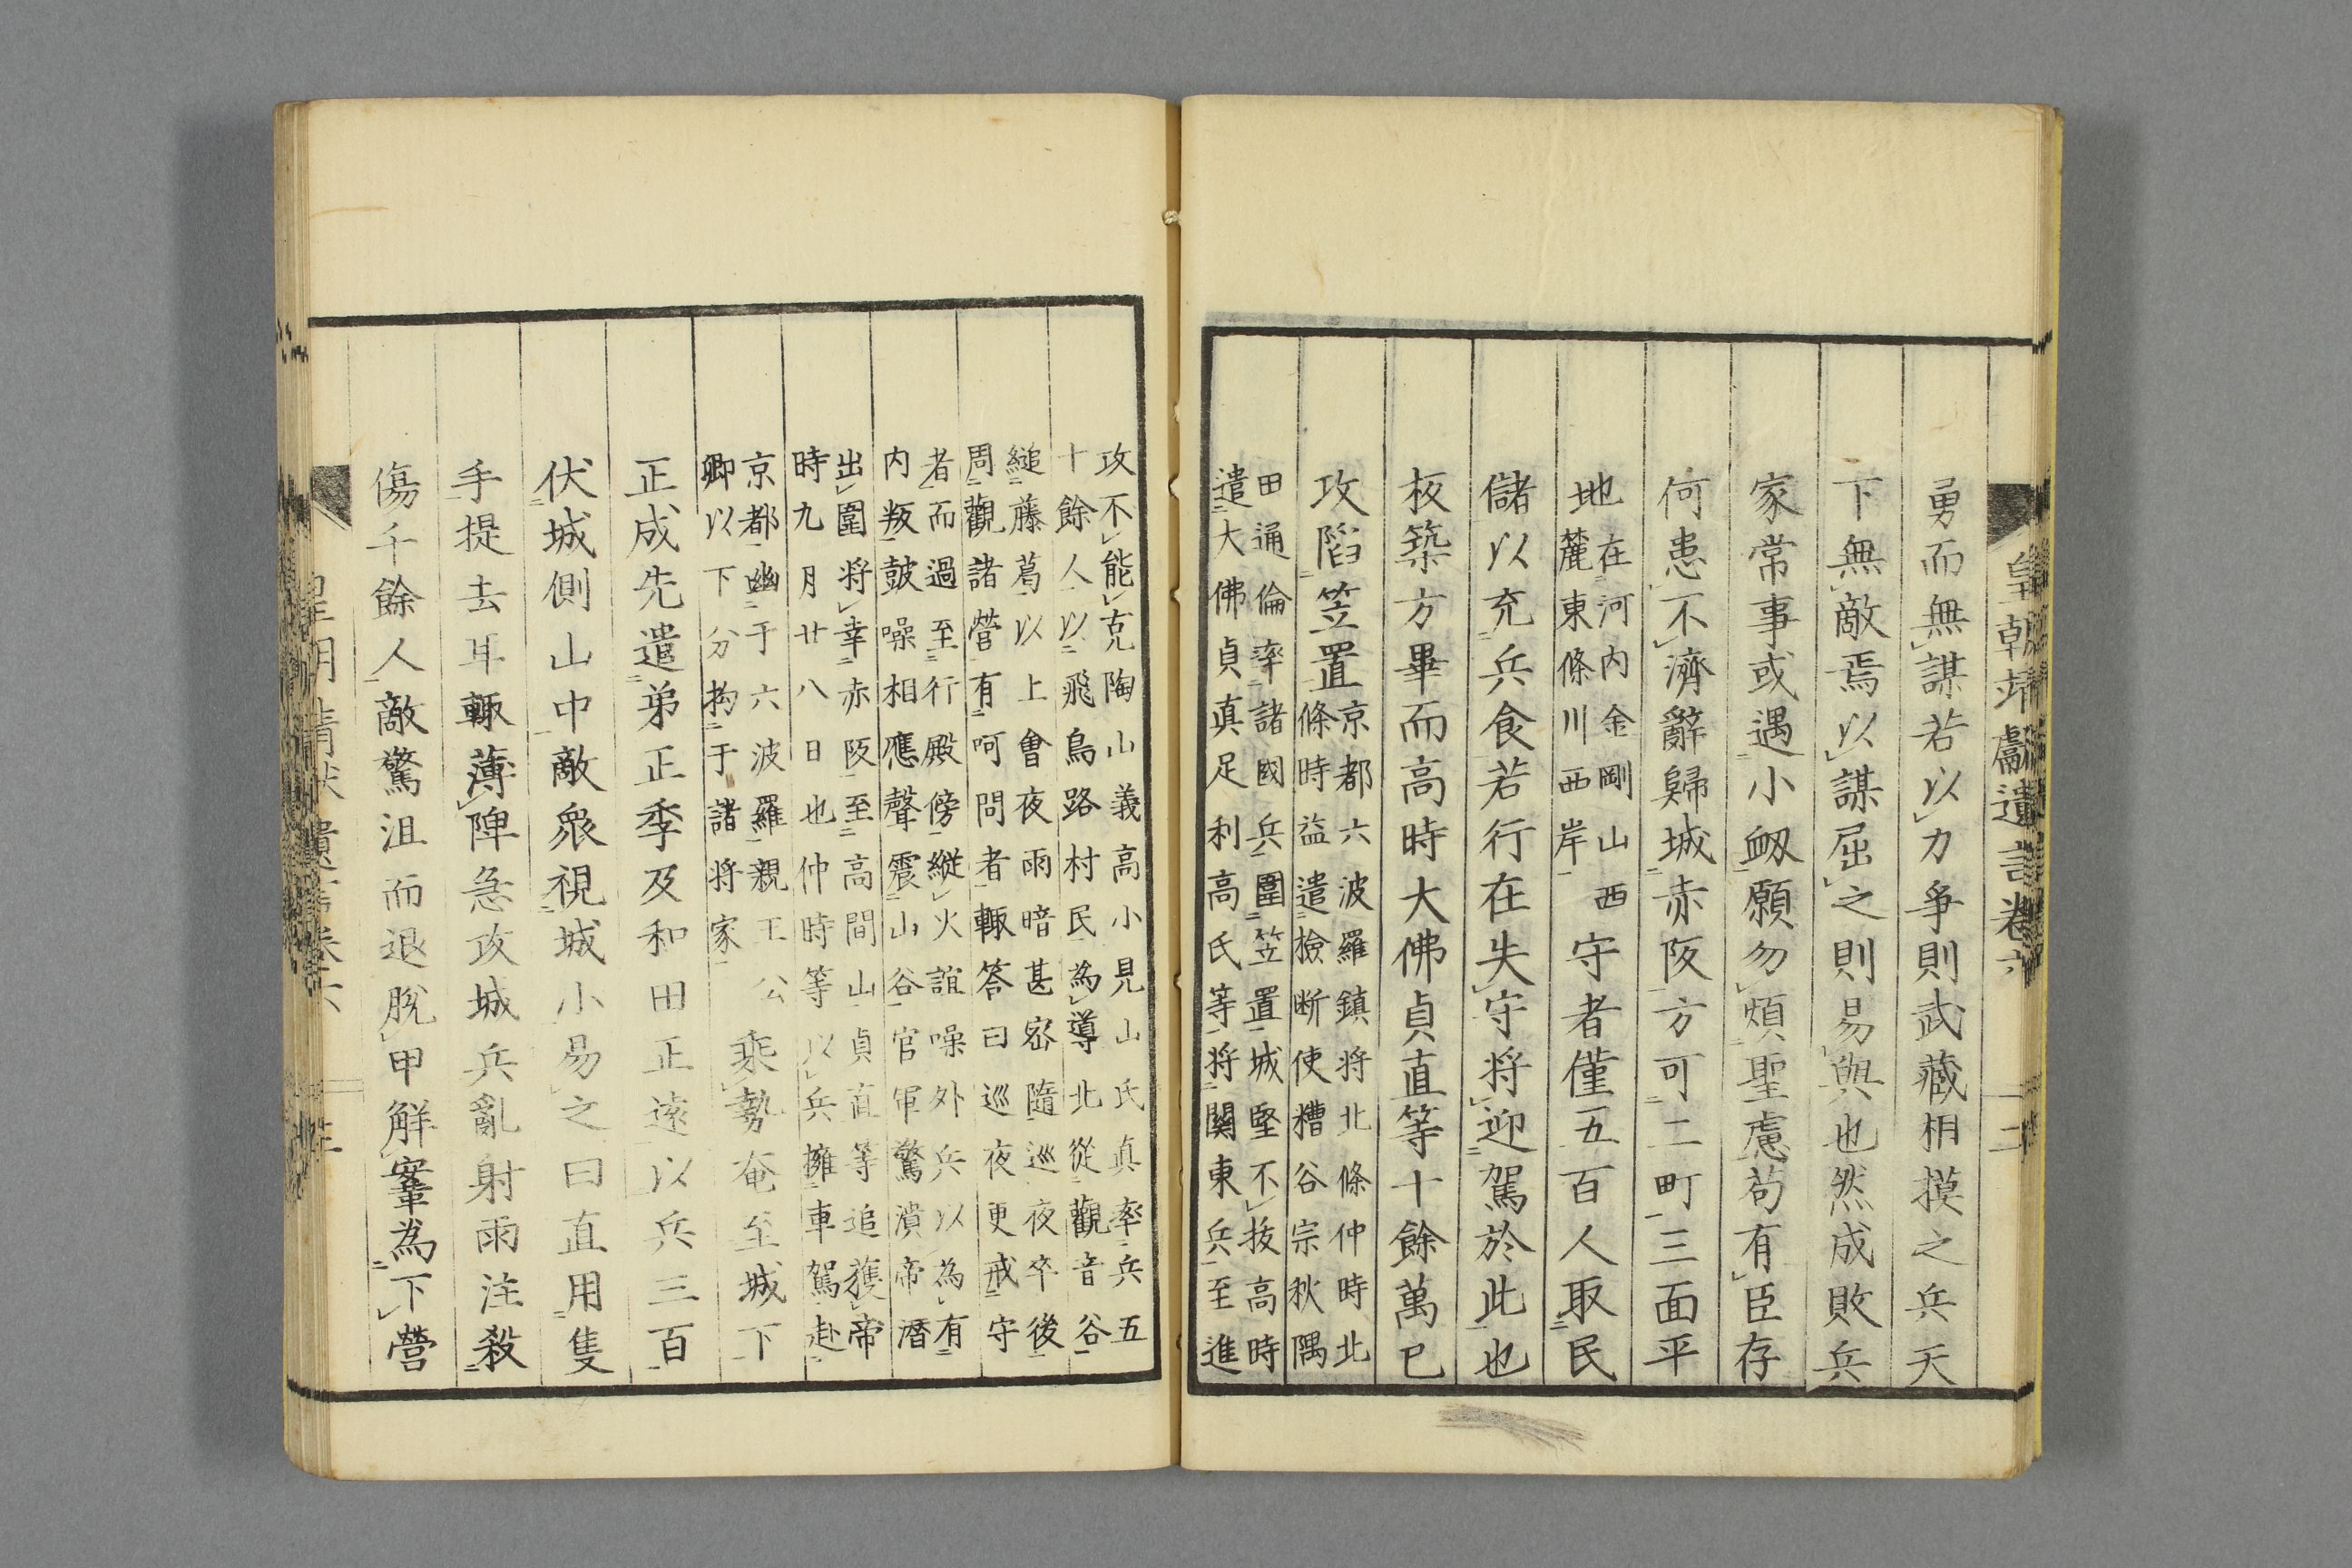 皇朝靖獻遺言卷六
勇而無謀若以力爭則武藏相摸之兵天
下無敵焉以謀屈之則易與也然成敗兵
家常事或遇小衂願勿煩聖慮苟有臣存
何患不濟辭歸城赤阪方可二町三面平
地
在河内金剛山西
麓東條川西岸
守者僅五百人取民
儲以充兵食若行在失守將迎駕於此也
板築方畢而高時大佛貞直等十餘萬已
攻陷笠置
京都六波羅鎮將北條仲時北
條時益遣檢断使糟谷宗秋隅
田通倫率諸國兵圍笠置城堅不抜高時
遣大佛貞真足利高氏等将關東兵至進
攻不能克陶山義高小見山氏真率兵五
十餘人以飛鳥路村民為導北從觀音谷
縋藤葛以上會夜雨暗甚密隨巡夜卒後
周觀諸營有呵問者輙答曰巡夜更戒守
者而過至行殿傍縱火諠噪外兵以為有
内叛鼓噪相應聲震山谷官軍驚潰帝潛
出圍将幸赤阪至高間山貞直等追獲帝
時九月廿八日也仲時等以兵擁車駕赴
京都幽于六波羅親王公
卿以下分拘于諸将家
乘勢奄至城下
正成先遣弟正季及和田正遠以兵三百
伏城側山中敵衆視城小易之曰直用隻
手提去耳輙薄陴急攻城兵亂射雨注殺
傷千餘人敵驚沮而退脫甲解鞌為下營